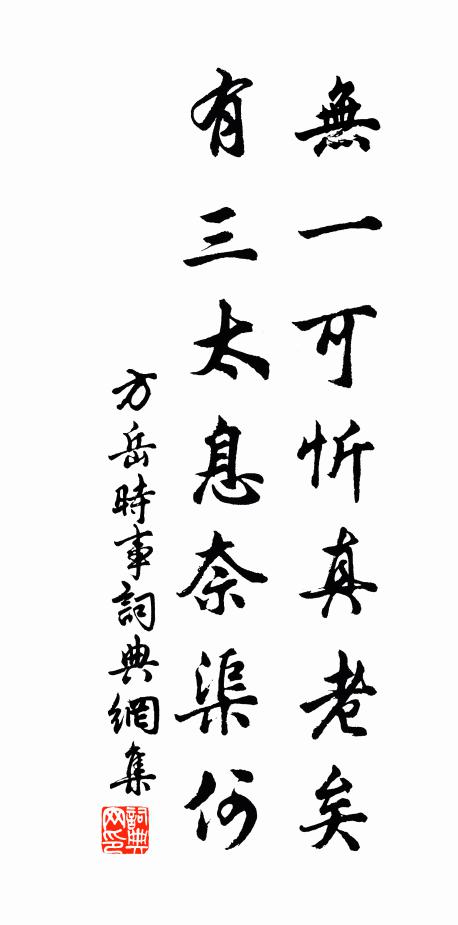 無一可忻真老矣
有三太息奈渠何
方岳時事詞典網集
詞典
网印